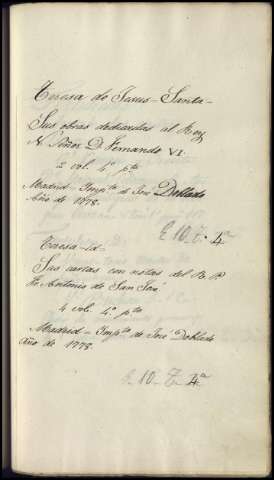 Teresa de Jesus - Santa -
Sus obras dedicadas al Rey
N. Señor D. Fernando VI.
2 vol. 4º pta
Madrid - Impta de José Doblado
Año de 1778.
E. 10. T. 4a
Teresa - id -
Sus cartas con notas del R. P.
Fr. Antonio de San José
4 vol. 4º pta
Madrid - Impta de José Doblado
Año de 1778.
E. 10. T. 4a